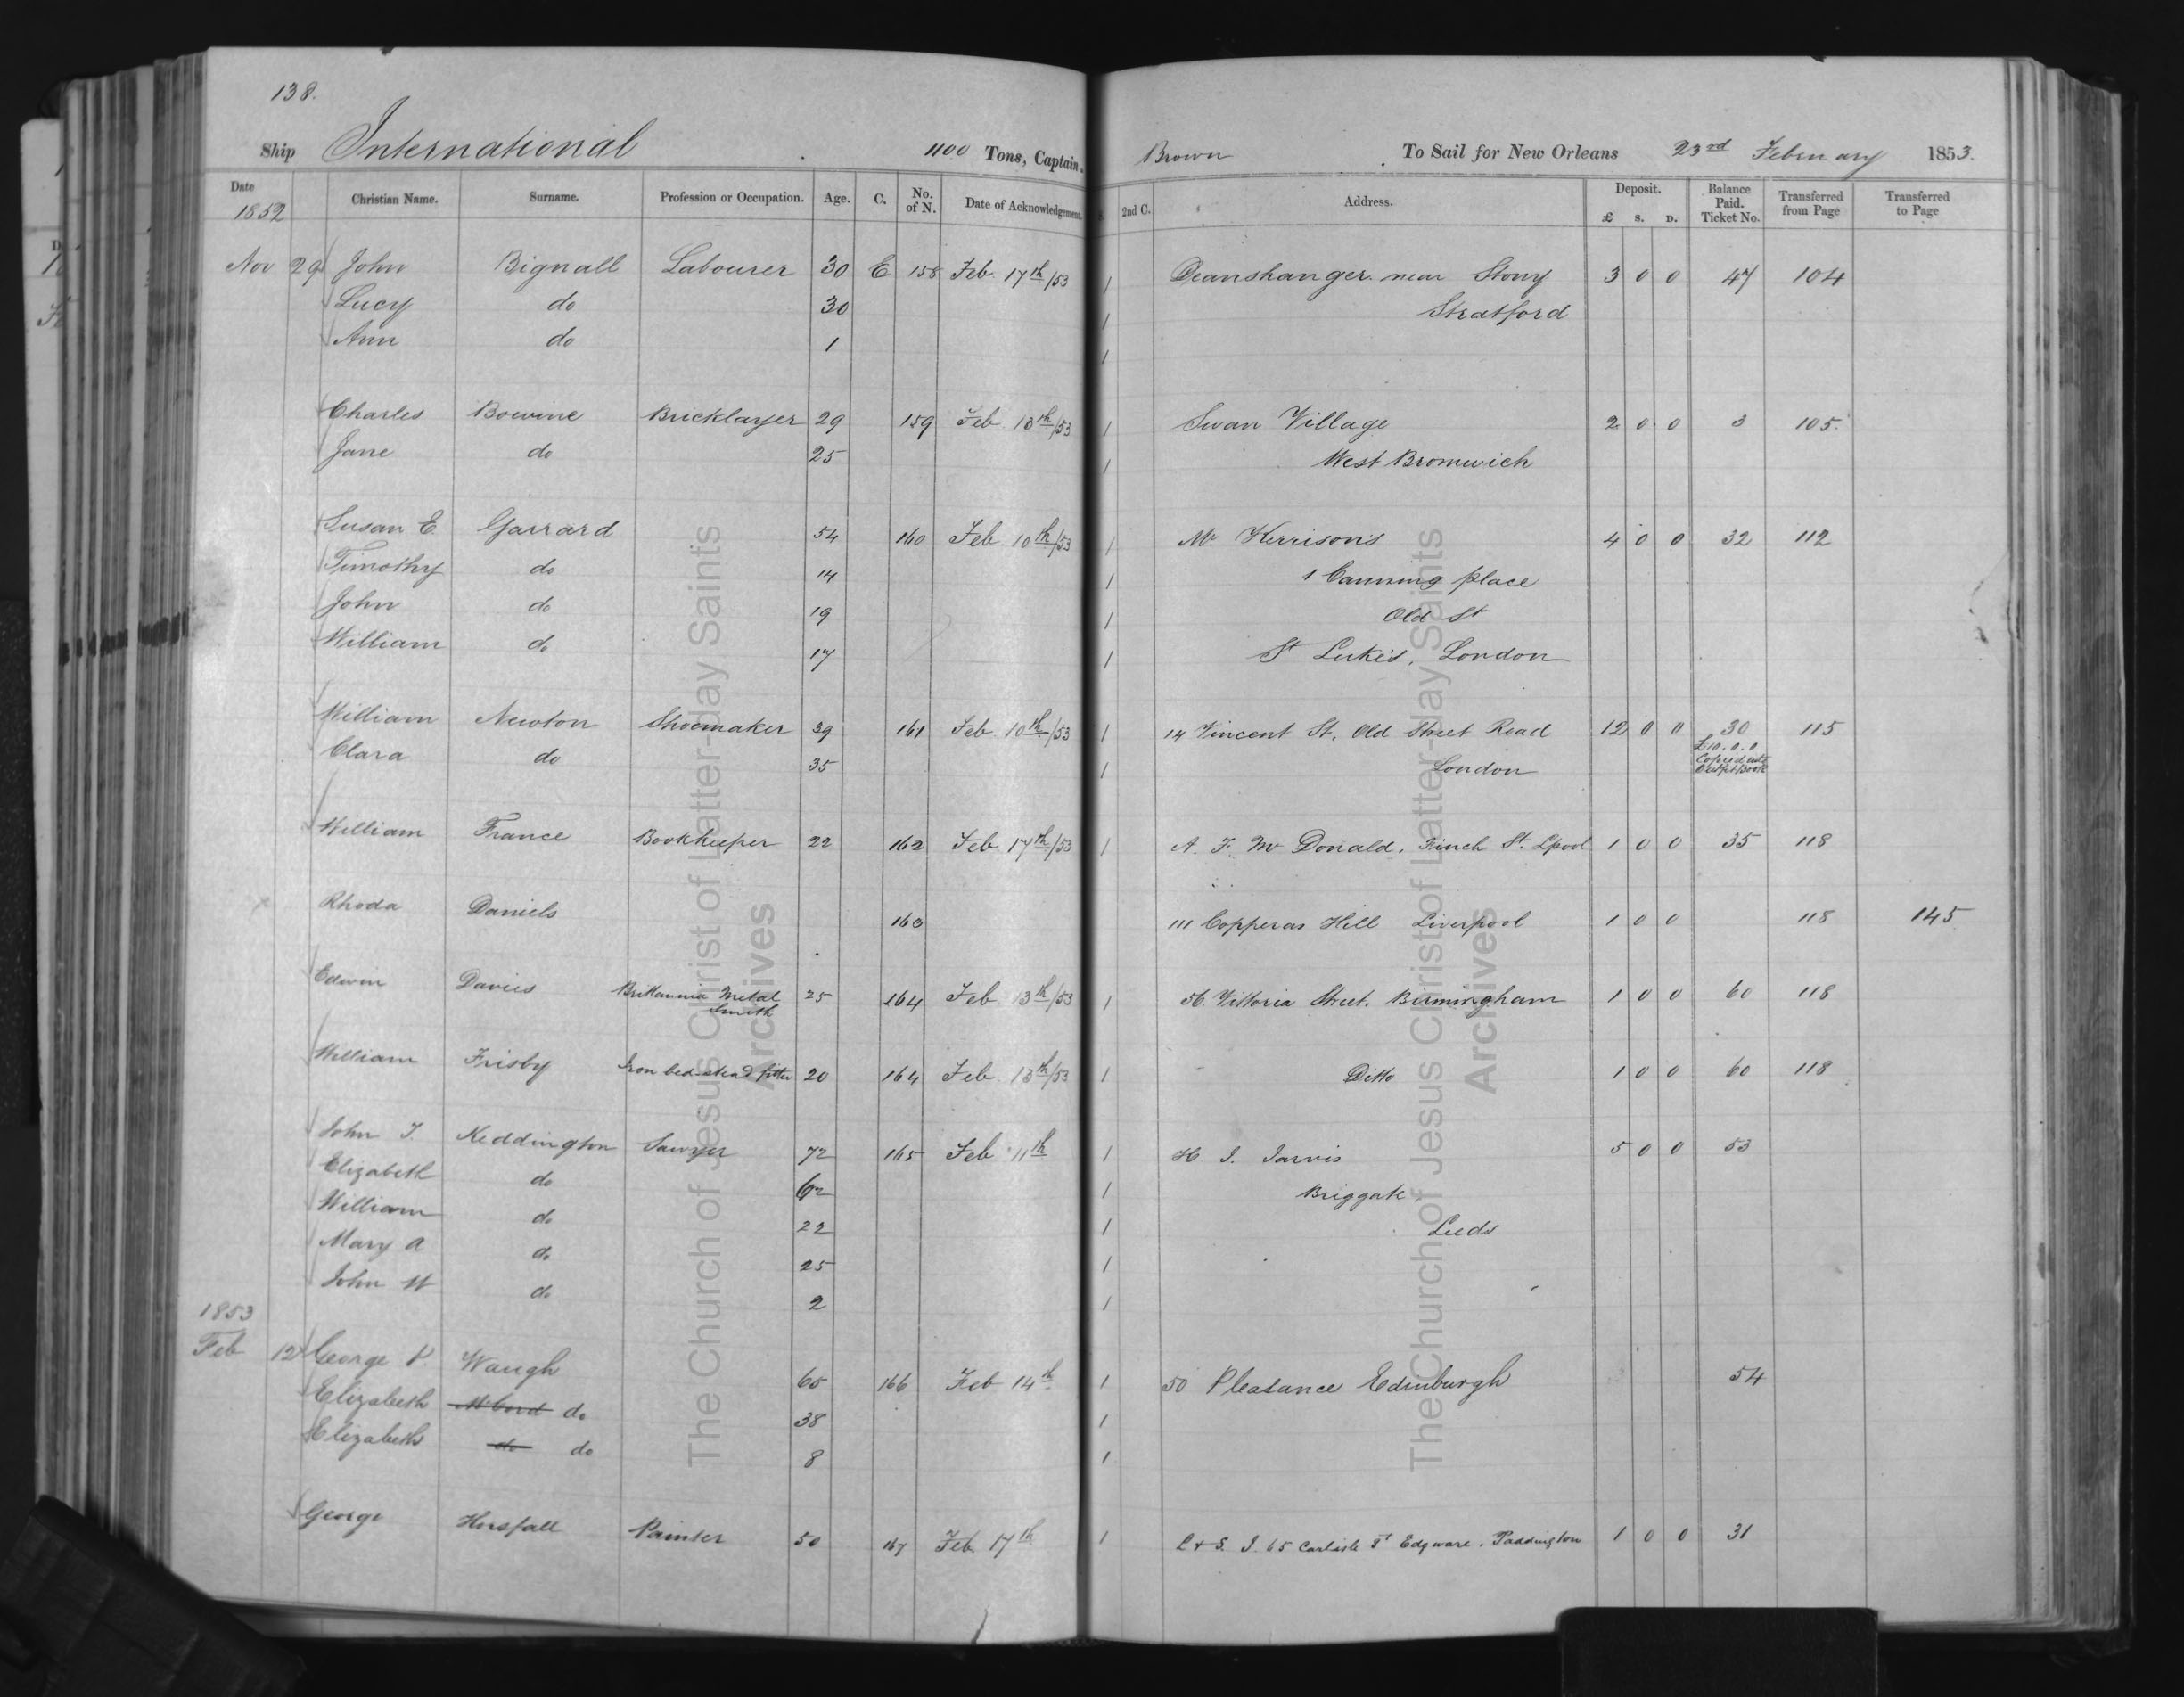 138.
Ship International 1100 Tons, Captain Brown To Sail for New Orleans 23rd February 1853.
Date Christian Name. Surname. Profession or Occupation. Age. C. No. of N. Date of Acknowledgement. 2nd C. Address. Deposit. £ s. D. Balance Paid. Ticket No. Transferred from Page Transferred to Page
1852
Nov 29 John Bignall Labourer 30 E 158 Feb 17th/53 1 Deanshanger near Stony 3 0 0 47 104
Lucy do 30 1 Stratford
Ann do 1 1
Charles Bowine Bricklayer 29 159 Feb 13th/53 1 Swan Village 2 0 0 3 105.
Jane do 25 1 West Bromwich
Susan E Garrard 54 160 Feb 10th/53 1 Mr Kerrison's 4 0 0 32 112
Timothy do 14 1 1 Canning place
John do 19 1 Old St
William do 17 1 St Luke's, London
William Newton Shoemaker 39 161 Feb 10th/53 1 14 Vincent St, Old Street Road 12 0 0 30 115
£10.0.0
Clara do 35 1 London Copied into
Outfit Book
William France Bookkeeper 22 162 Feb 17th/53 1 A. F. Mc Donald, Finch St. Lpool 1 0 0 35 118
Rhoda Daniels 163 111 Copperas Hill Liverpool 1 0 0 118 145
Edwin Davies Brittannia Metal 25 164 Feb 13th/53 1 56 Vittoria Street, Birmingham 1 0 0 60 118
Smith
William Frisby Iron bed-stead fitter 20 164 Feb 13th/53 1 Ditto 1 0 0 60 118
John J. Keddington Sawyer 72 165 Feb 11th 1 H I. Jarvis 5 0 0 53
Elizabeth do 62 1 Briggate
William do 22 1 Leeds
Mary A do 25 1
John W do 2 1
1853
Feb 12 George P. Waugh 65 166 Feb 14th 1 50 Pleasance Edinburgh 54
Elizabeth do 38 1
Elizabeth do do 8 1
George Horsfall Painter 50 167 Feb 17th 1 65 Carlisle St Edgware. Paddington 1 0 0 31
The Church of Jesus Christ of Latter-day Saints
Archives
The Church of Jesus Christ of Latter-day Saints
Archives